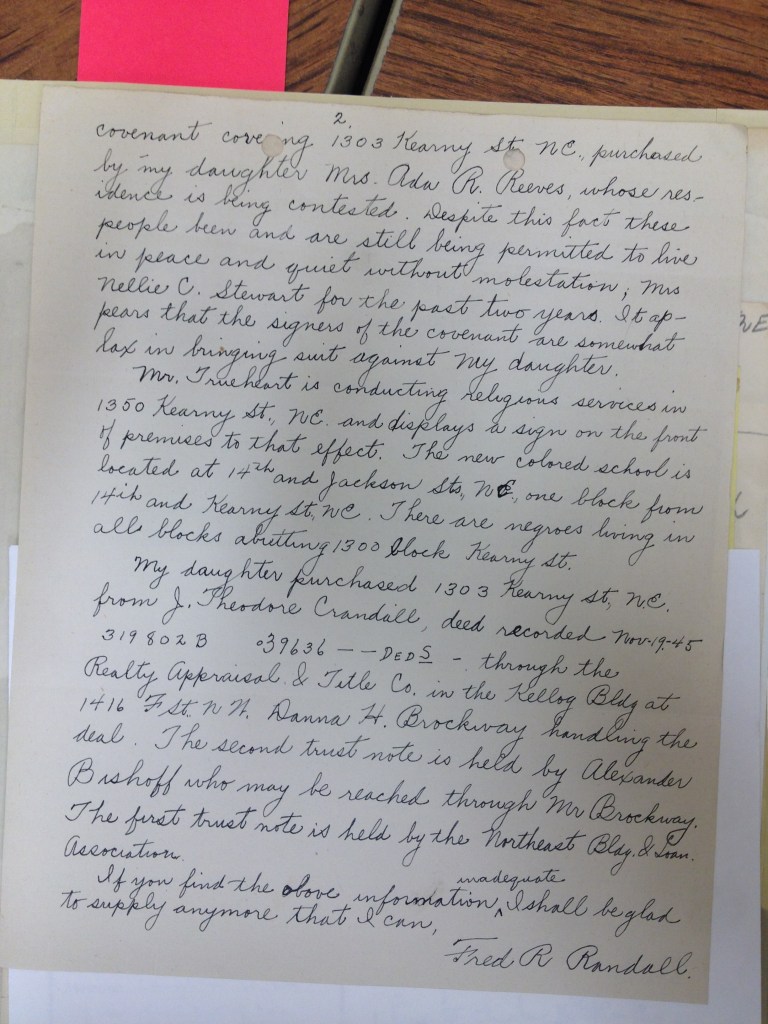 2.
covenant covering 1303 Kearny St. NE., purchased
by my daughter Mrs. Ada R. Reeves, whose res-
idence is being contested. Despite this fact these
people been and are still being permitted to live
in peace and quiet without molestation; Mrs
Nellie C. Stewart for the past two years. It ap-
pears that the signers of the covenant are somewhat
lax in bringing suit against my daughter.
Mr. Trueheart is conducting religious services in
1350 Kearny St., NE. and displays a sign on the front
of premises to that effect. The new colored school is
located at 14th and Jackson Sts., NE., one block from
14th and Kearny St. NE. There are negroes living in
all blocks abutting 1300 block Kearny St.
My daughter purchased 1303 Kearny St., NE.
from J. Theodore Crandall, deed recorded Nov-19-45
319802B 039636 — — DEDS -. through the
Realty Appraisal & Title Co. in the Kellog Bldg at
1416 F St. N W. Danna H. Brockway handling the
deal. The second trust note is held by Alexander
Bishoff who may be reached through Mr Brockway.
The first trust note is held by the Northeast Bldg. & Loan.
Association.
inadequate
If you find the above information ^ I shall be glad
to supply anymore that I can,
Fred R Randall.